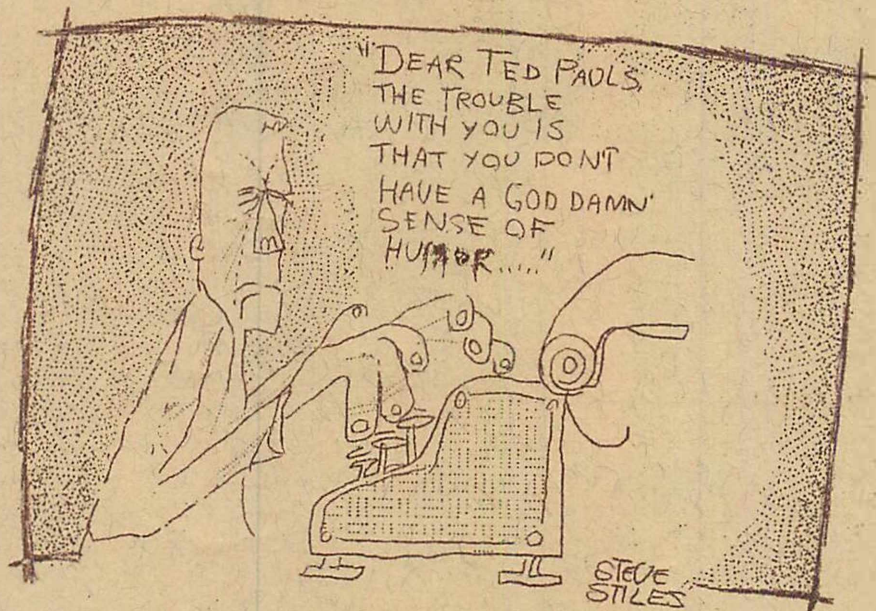 "DEAR TED PAULS,
THE TROUBLE
WITH YOU IS
THAT YOU DON'T
HAVE A GOD DAMN'
SENSE OF
HUMOR....."
STEVE
STILES